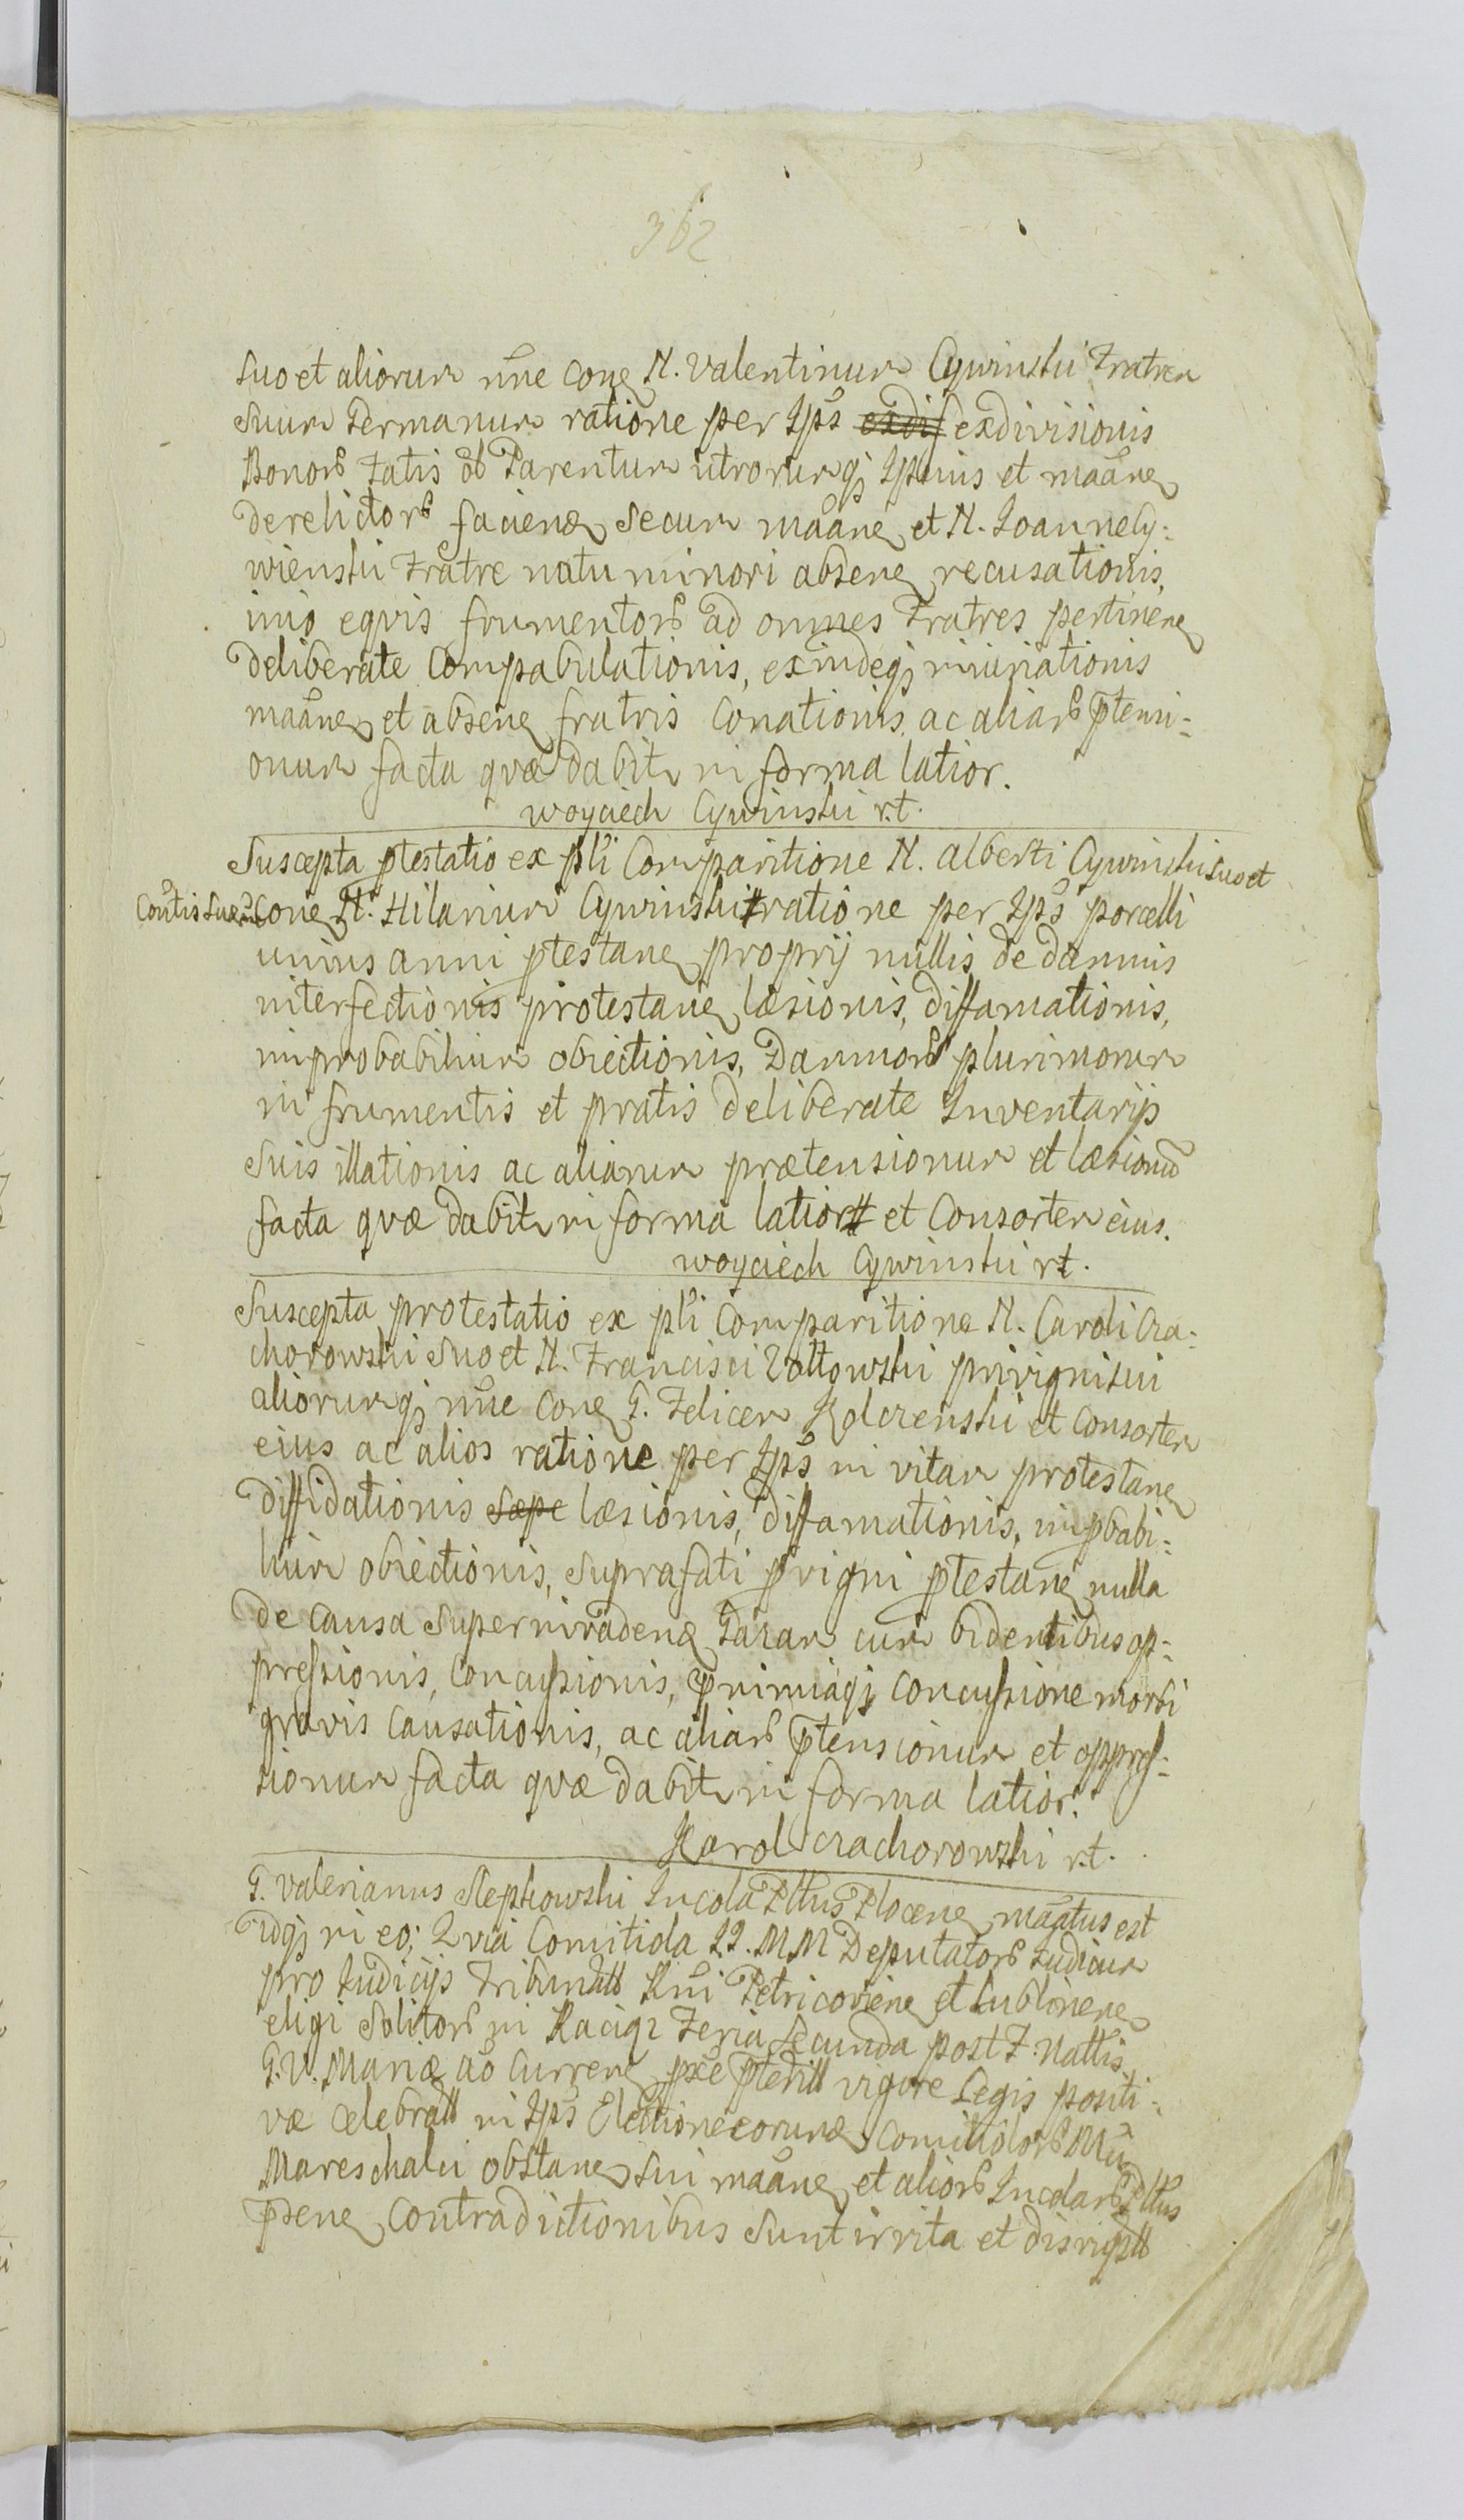 362
suo et aliorum nne cong N. Valentinum Cywinski Fratrem
suum Germanum ratione per Ips exdif exdivisionis
Bonor Fatis ob Parentum utrorumqj Ipsius et maane
derelictor faciene secum maane et N. Joanne Cy:
winski Fratre natu minori absene recusationis,
imo equis frumentor ad omnes Fratres pertinene
deliberate Compabulationis, exindeqj iniuriationis
maane et absene fratris Conationis, ac aliar ptensi:
onum facta quæ dabitr in forma latior.
Woyciech Cywinski r.t.
Suscepta ptestatio ex pli Comparitione N. Alberti Cywinski suo et
Contis suæ nne Cone N. Hilarium Cywinski # ratione per Ips porcelli
unius anni ptestane proprij nullis de damnis
interfectionis protestane læsionis, diffamationis,
improbabilium obiectionis, Damnor plurimorum
in frumentis et pratis deliberate Inventarijs
suis illationis ac aliarum prætensionum et læsionu
facta quæ dabitr in forma latior # et Consortem eius.
Woyciech Cywinski rt.
Suscepta protestatio ex pli Comparitione N. Caroli Cza:
chorowski suo et N. Francisci Zoltowski privigni sui
aliorumqj nne Cone G. Felicem Kolczenski et Consortem
eius ac alios ratione per Ips in vitam protestane
diffidationis sæpe læsionis, diffamationis, impbabi:
lium obiectionis, suprafati pvigni ptestane nulla
de Causa superinvadene Gazam cum bidentibus op:
pressionis, Concussionis, pnimiaqj Concussione morbi
gravis Causationis, ac aliar ptensionum et oppres:
sionum facta quæ dabitr in forma latior.
Karol Czachorowski r.t.
G. Valerianus Slepkowski Incola Pltus Plocene maatus est
idqj in eo; Quia Comitiola II. MM Deputator Iudicum
pro Iudicijs Tribunall Rni Petricoviene et Lublinene
eligi solitor in Raciąz Feria Secunda post F. Nattis
G.V. Mariæ ao Currene pxe pterill vigore Legis positi:
væ celebrall in Ips Electione eorunde Comitiolor Mci
Mareschalci obstane sui maane et alior Incolar Pltus
psene Contradictionibus sunt irrita et disrupll